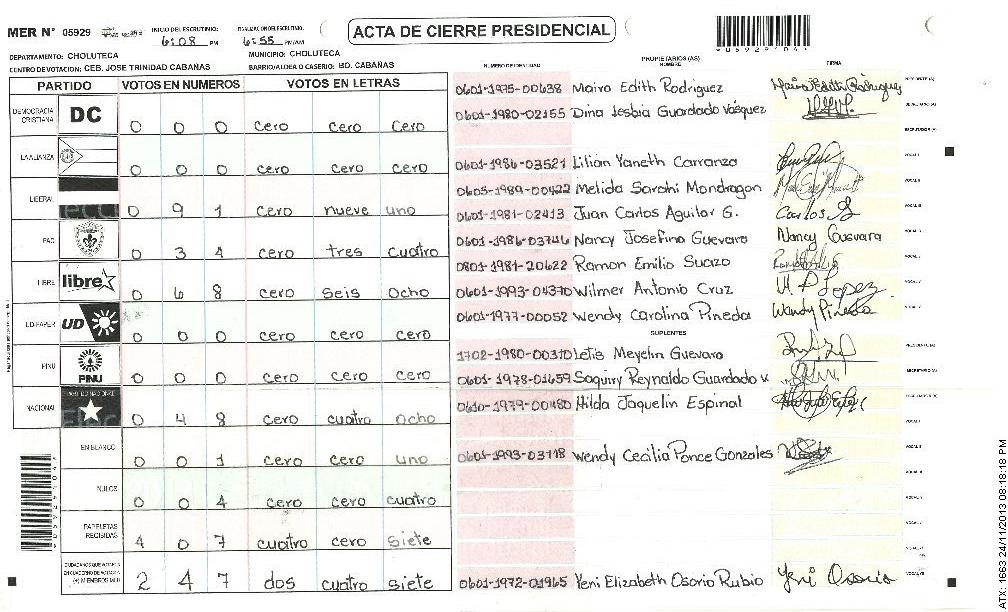 MER N° 05929 INICIO DEL ESCRUTINIO: 6:08 PM FINALIZACION DEL ESCRUTINIO: 6:55 PM/AM
ACTA DE CIERRE PRESIDENCIAL
DEPARTAMENTO: CHOLUTECA MUNICIPIO: CHOLUTECA
CENTRO DE VOTACION: CEB. JOSE TRINIDAD CABAÑAS BARRIO/ALDEA O CASERIO: BO. CABAÑAS
PARTIDO VOTOS EN NUMEROS VOTOS EN LETRAS
DEMOCRACIA CRISTIANA DC 0 0 0 cero cero cero
LA ALIANZA 0 0 0 cero cero cero
LIBERAL 0 9 1 cero nueve uno
PAC 0 3 4 cero tres cuatro
LIBRE libre 0 6 8 cero seis ocho
UD-FAPER UD 0 0 0 cero cero cero
PINU PINU 0 0 0 cero cero cero
NACIONAL 0 4 8 cero cuatro ocho
EN BLANCO 0 0 1 cero cero uno
NULOS 0 0 4 cero cero cuatro
PAPELETAS RECIBIDAS 4 0 7 cuatro cero siete
2 4 7 dos cuatro siete
PROPIETARIOS (AS)
NUMERO DE IDENTIDAD NOMBRE FIRMA
0601-1975-00638 Maira Edith Rodriguez
0601-1980-02155 Dina Lesbia Guardado Vásquez
0601-1986-03521 Lilian Yaneth Carranza
0605-1989-00422 Melida Sarahi Mondragon
0601-1981-02413 Juan Carlos Aguilar G. Carlos
0601-1986-03746 Nancy Josefina Guevara Nancy Guevara
0801-1981-20622 Ramon Emilio Suazo
0601-1993-04370 Wilmer Antonio Cruz
0601-1977-00052 Wendy Carolina Pineda Wendy Pineda
SUPLENTES
1702-1980-00310 Letis Meyelin Guevara
0601-1978-01659 Saquiry Reynaldo Guardado v.
0610-1979-00480 Hilda Jaquelin Espinal
0601-1993-03118 Wendy Cecilia Ponce Gonzales
0601-1972-01965 Yeni Elizabeth Osorio Rubio Yeni Osorio
ATX: 1663 24/11/2013 08:18:18 PM